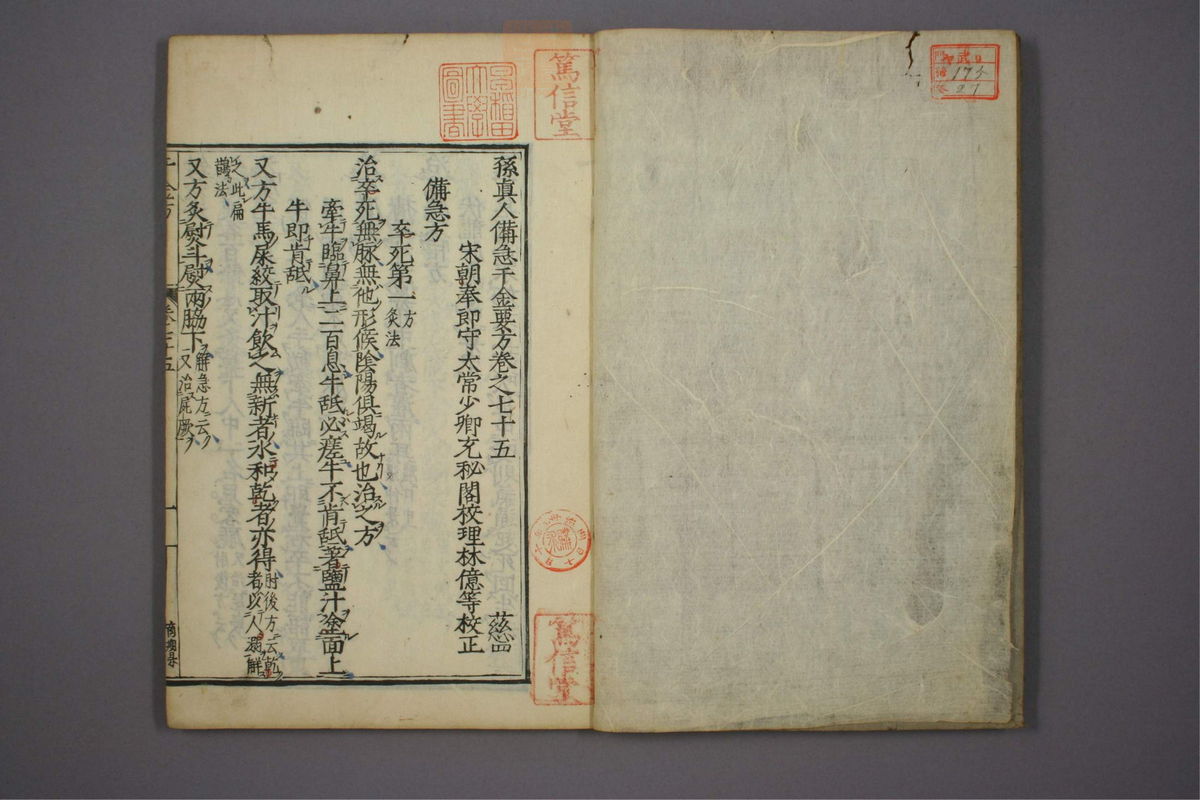 孫真人備急千金要方卷之七十五 慈四
宋朝奉郎守太常少卿充秘閣校理林億等校正
備急方
卒死第一 方灸法
治卒死無脉無他形候陰陽俱竭故也治之方
牽牛臨鼻上二百息牛舐必瘥牛不肯舐著鹽汁塗面上
牛即肯舐
又方牛馬屎絞取汁飲之無新者水和乾者亦得 肘後方云乾者以人溺解
之此扁鵲法
又方灸熨斗熨兩脇下 備急方云又治尸厥
千金方 卷七十五 一
篤信堂
早稻田大學圖書
篤信堂
175
27